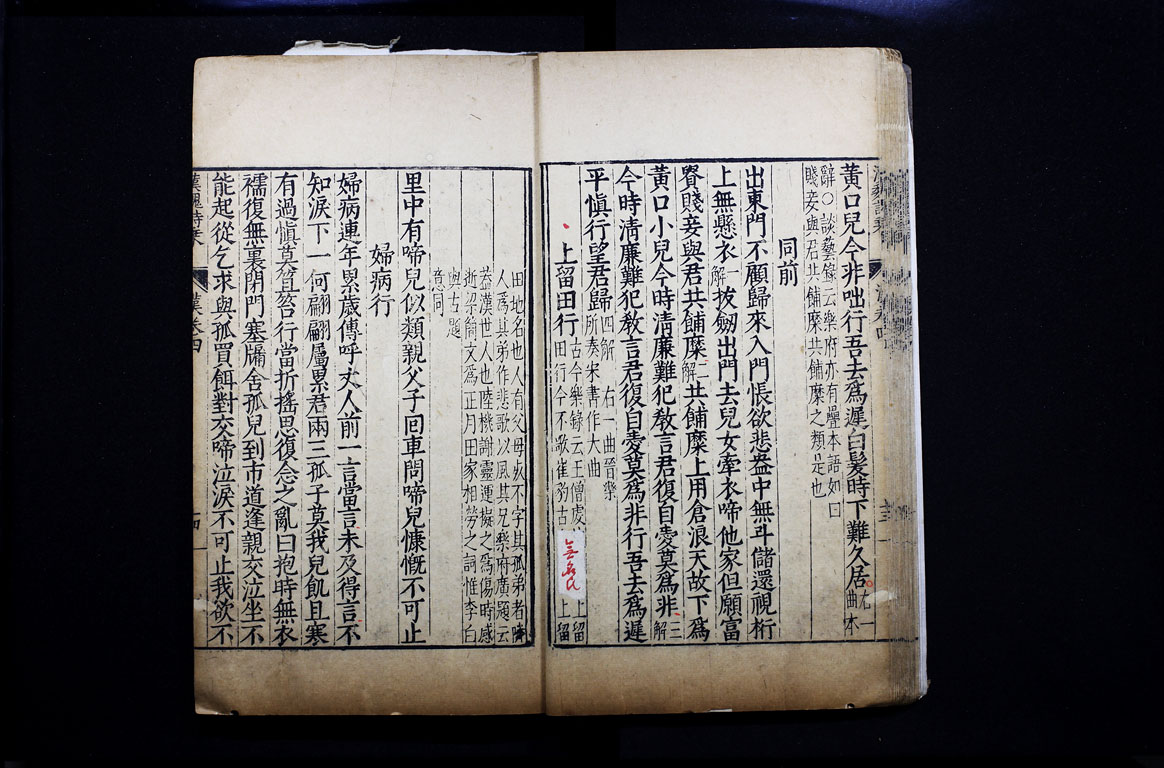 黃口兒今非咄行吾去爲遲白髮時下難久居右一
曲本
辭○談藝錄云樂府亦有疊本語如曰
賤妾與君共餔糜共餔糜之類是也
同前
出東門不顧歸來入門悵欲悲盎中無斗儲還視桁
上無懸衣一解拔劒出門去兒女牽衣啼他家但願富
貴賤妾與君共餔糜二解共餔糜上用倉浪天故下爲
黃口小兒今時清廉難犯教言君復自愛莫爲非三解
今時清廉難犯教言君復自愛莫爲非行吾去爲遲
平愼行望君歸四解 右一曲晉樂
所奏宋書作大曲
上留田行古今樂錄云王僧虔
上留
田行今不歌崔豹古
上留
田地名也人有父母歿不字其孤弟者隣
人爲其弟作悲歌以風其兄樂府廣題云
葢漢世人也陸機謝靈運擬之爲傷時感
逝梁簡文爲正月田家相勞之詞惟李白
與古題
意同
里中有啼兒似類親父子回車問啼兒慷慨不可止
婦病行
婦病連年累歲傳呼丈人前一言當言未及得言不
知淚下一何翩翩屬累君兩三孤子莫我兒飢且寒
有過愼莫笪笞行當折搖思復念之亂曰抱時無衣
襦復無裏閉門塞牖舍孤兒到市道逢親交泣坐不
能起從乞求與孤買餌對交啼泣淚不可止我欲不
漢魏詩
漢卷四
四一
無名氏